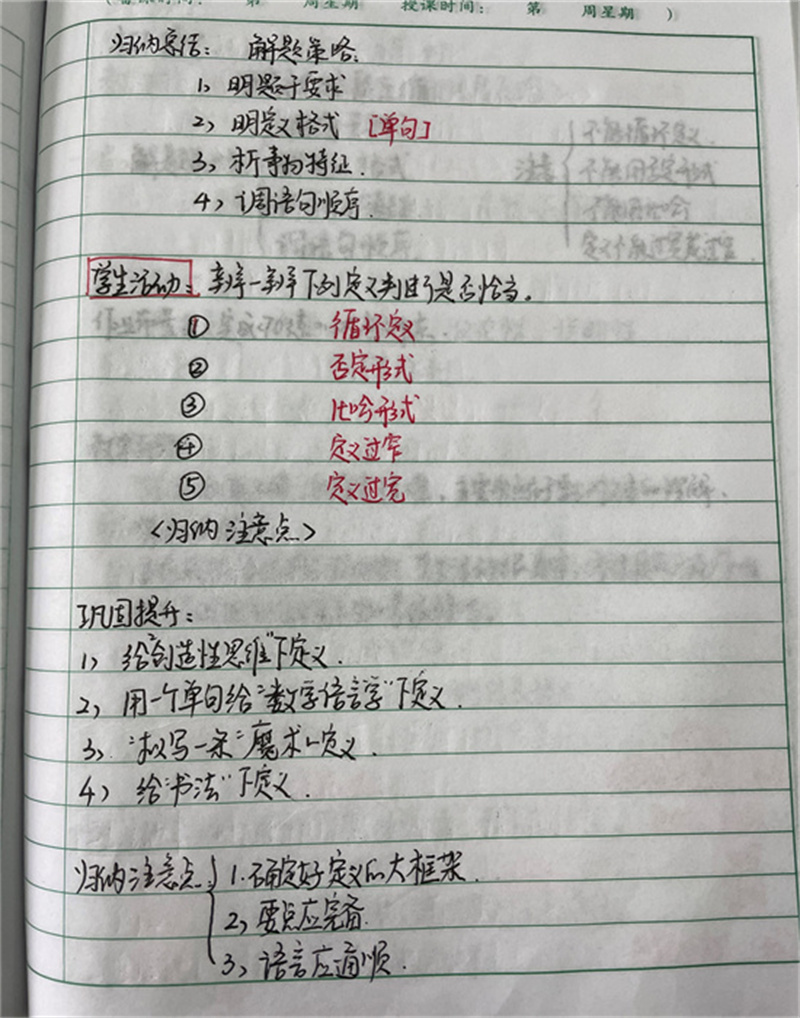 (备课时间: 第 周星期 授课时间: 第 周星期 )
归纳总结: 解题策略:
1、明题干要求
2、明定义格式 [单句]
3、析事物特征.
4、调语句顺序.
学生活动: 辨一辨下列定义判断是否恰当。
① 循环定义
② 否定形式
③ 比喻形式
④ 定义过窄
⑤ 定义过宽
<归纳注意点>
巩固提升:
1) 给"创造性思维"下定义.
2) 用一个单句给"数字语言学"下定义.
3) 拟写一条"魔术"定义.
4) 给"书法"下定义.
归纳注意点: 1.确定好定义的大框架.
2、要点应完备.
3、语言应通顺.